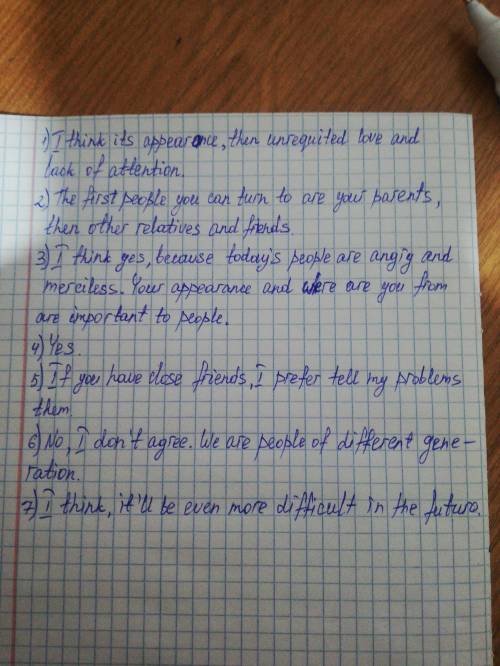 1) I think its appearance, then unrequited love and
lack of attention.
2) The first people you can turn to are your parents,
then other relatives and friends.
3) I think yes, because today's people are angry and
merciless. Your appearance and where are you from
are important to people.
4) Yes.
5) If you have close friends, I prefer tell my problems
them.
6) No, I don't agree. We are people of different gene-
ration.
7) I think, it'll be even more difficult in the future.